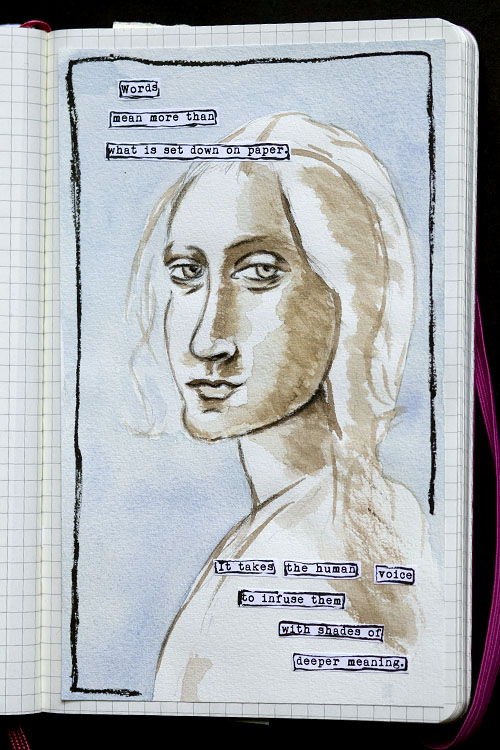 Words
mean more than
what is set down on paper.
It takes the human voice
to infuse them
with shades of
deeper meaning.